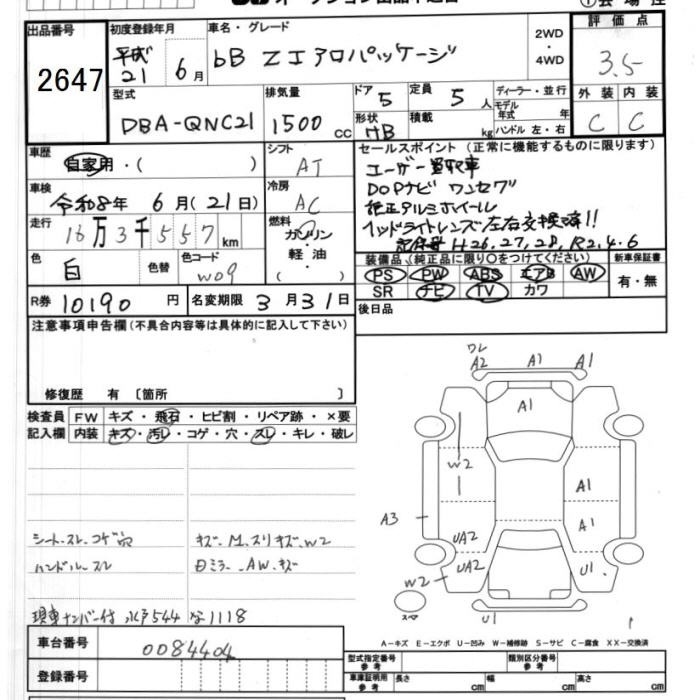 出品番号
2647
初度登録年月
平成 21 6月
車名・グレード
bB Z エアロパッケージ
2WD
・
4WD
評価点
3.5
型式
DBA-QNC21
排気量
1500 CC
ドア 5
形状 HB
定員 5 人
積載 kg
ディーラー・並行
モデル年式 年
ハンドル 左・右
外装 内装
C C
車歴
自家用・( )
シフト
AT
車検
令和8年 6月(21日)
冷房
AC
走行
16万3千557km
燃料
ガソリン
・
軽油
( )
色
白
色替
色コード
W09
R券 10190 円
名変期限 3月31日
セールスポイント (正常に機能するものに限ります)
ユーザー買取車
DOPナビ ワンセグ
純正アルミホイール
ヘッドライトレンズ左右交換済!!
記録簿 H26.27.28. R2.4.6
装備品 (純正品に限り○をつけてください)
PS PW ABS エアB AW
SR ナビ TV カワ
新車保証書
有・無
後日品
注意事項申告欄(不具合内容等は具体的に記入して下さい)
修復歴 有 〔箇所 〕
検査員 FW キズ・飛石・ヒビ割・リペア跡・×要
記入欄 内装 キズ・汚レ・コゲ・穴・スレ・キレ・破レ
シート.スレ.コゲ穴
ハンドル.スレ
キズ.M.スリキズ.W2
日ミラー.AW.キズ
現車ナンバー付 水戸544 な1118
ワレ
A2 A1 A1
A1
W2
A1
A3
A1
UA2
UA2 U1
W2
スペア
U1
A-キズ E-エクボ U-凹み W-補修跡 S-サビ C-腐食 XX-交換済
車台番号 0084404
登録番号
型式指定番号 参考
類別区分番号 参考
車庫証明用 参考
長さ cm
幅 cm
高さ cm